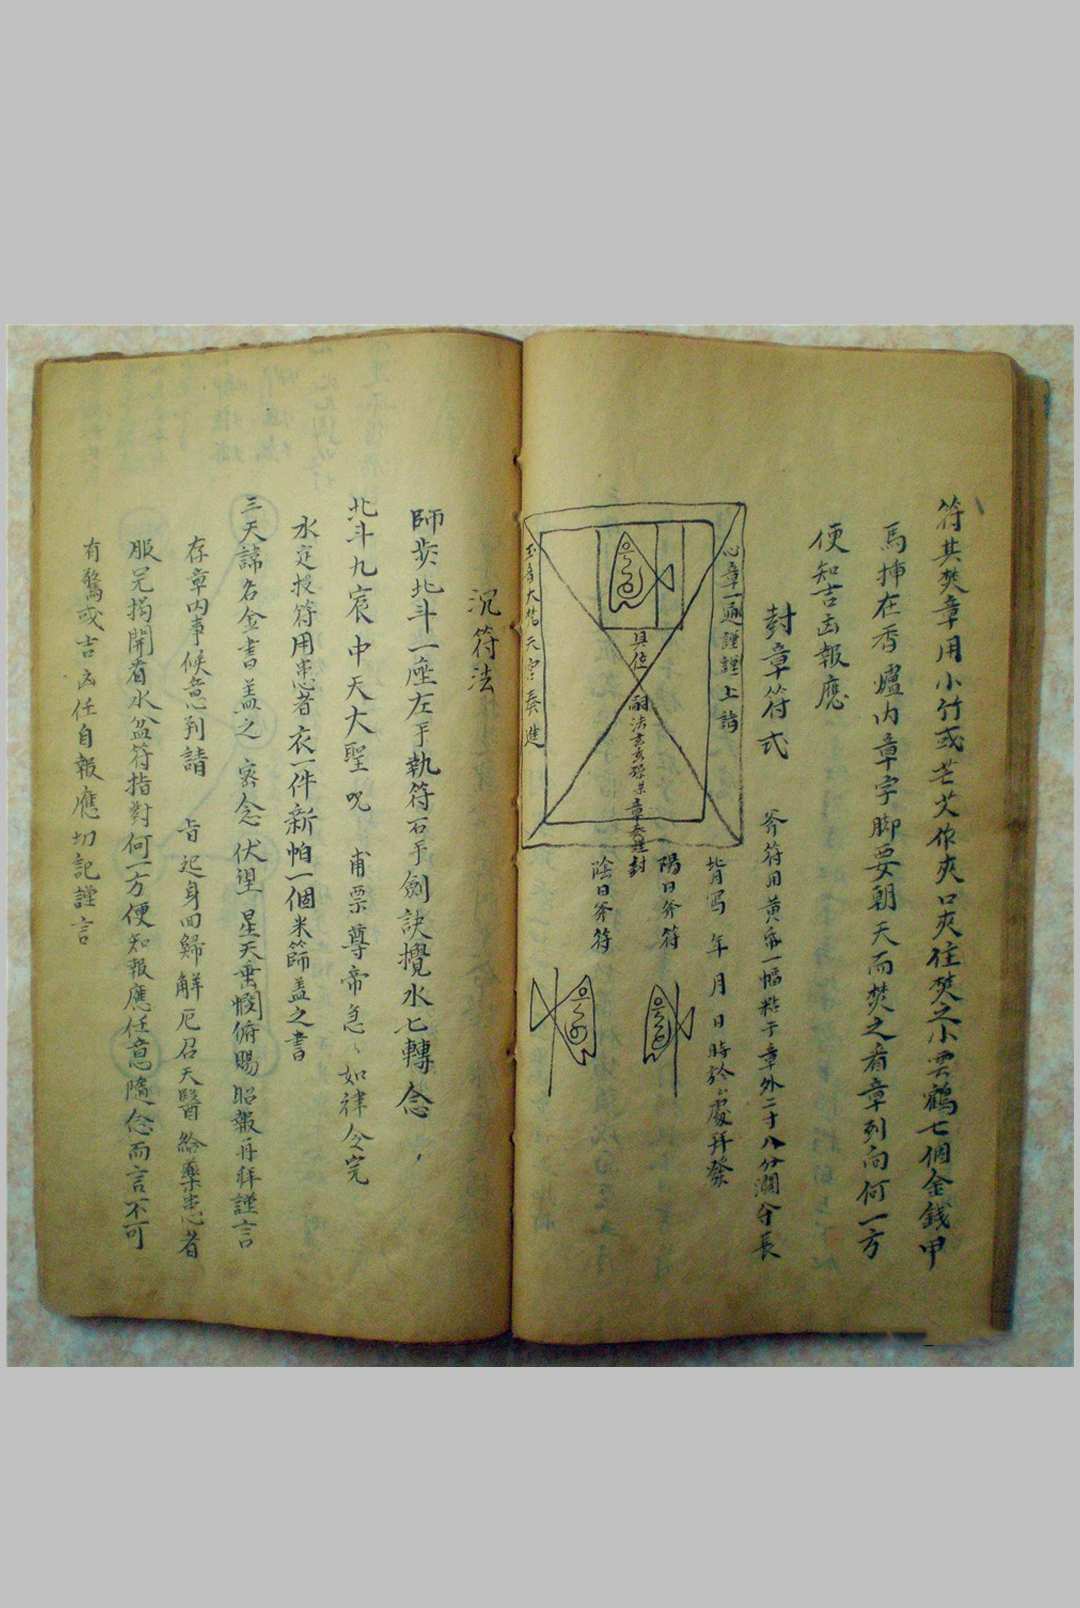 符其焚章用小竹或芒艾作夾口夾住焚之小雲鶴七個金錢甲
馬插在香爐內章字脚要朝天而焚之看章列向何一方
便知吉凶報應
封章符式
斧符用黃帋一幅粘于章外二寸八分濶分長
心章一通謹謹上詣
具位
章奏謹封
天字奏進
皆寫 年 月 日時於 處拜發
陽日斧符
陰日斧符
沉符法
師步北斗一座左手執符石手劍訣攪水七轉念
北斗九宸中天大聖咒 甫票尊帝急如律令完
水定投符用患者衣一件新帕一個米篩盖之書
三天諱名金書盖之 密念伏望一星天垂憫俯賜昭報再拜謹言
存章内事候意到請 旨起身回歸解厄召天醫給藥患者
服完揭開看水盆符指對何一方便知報應任意隨念而言不可
有驚或吉凶任自報應切記謹言